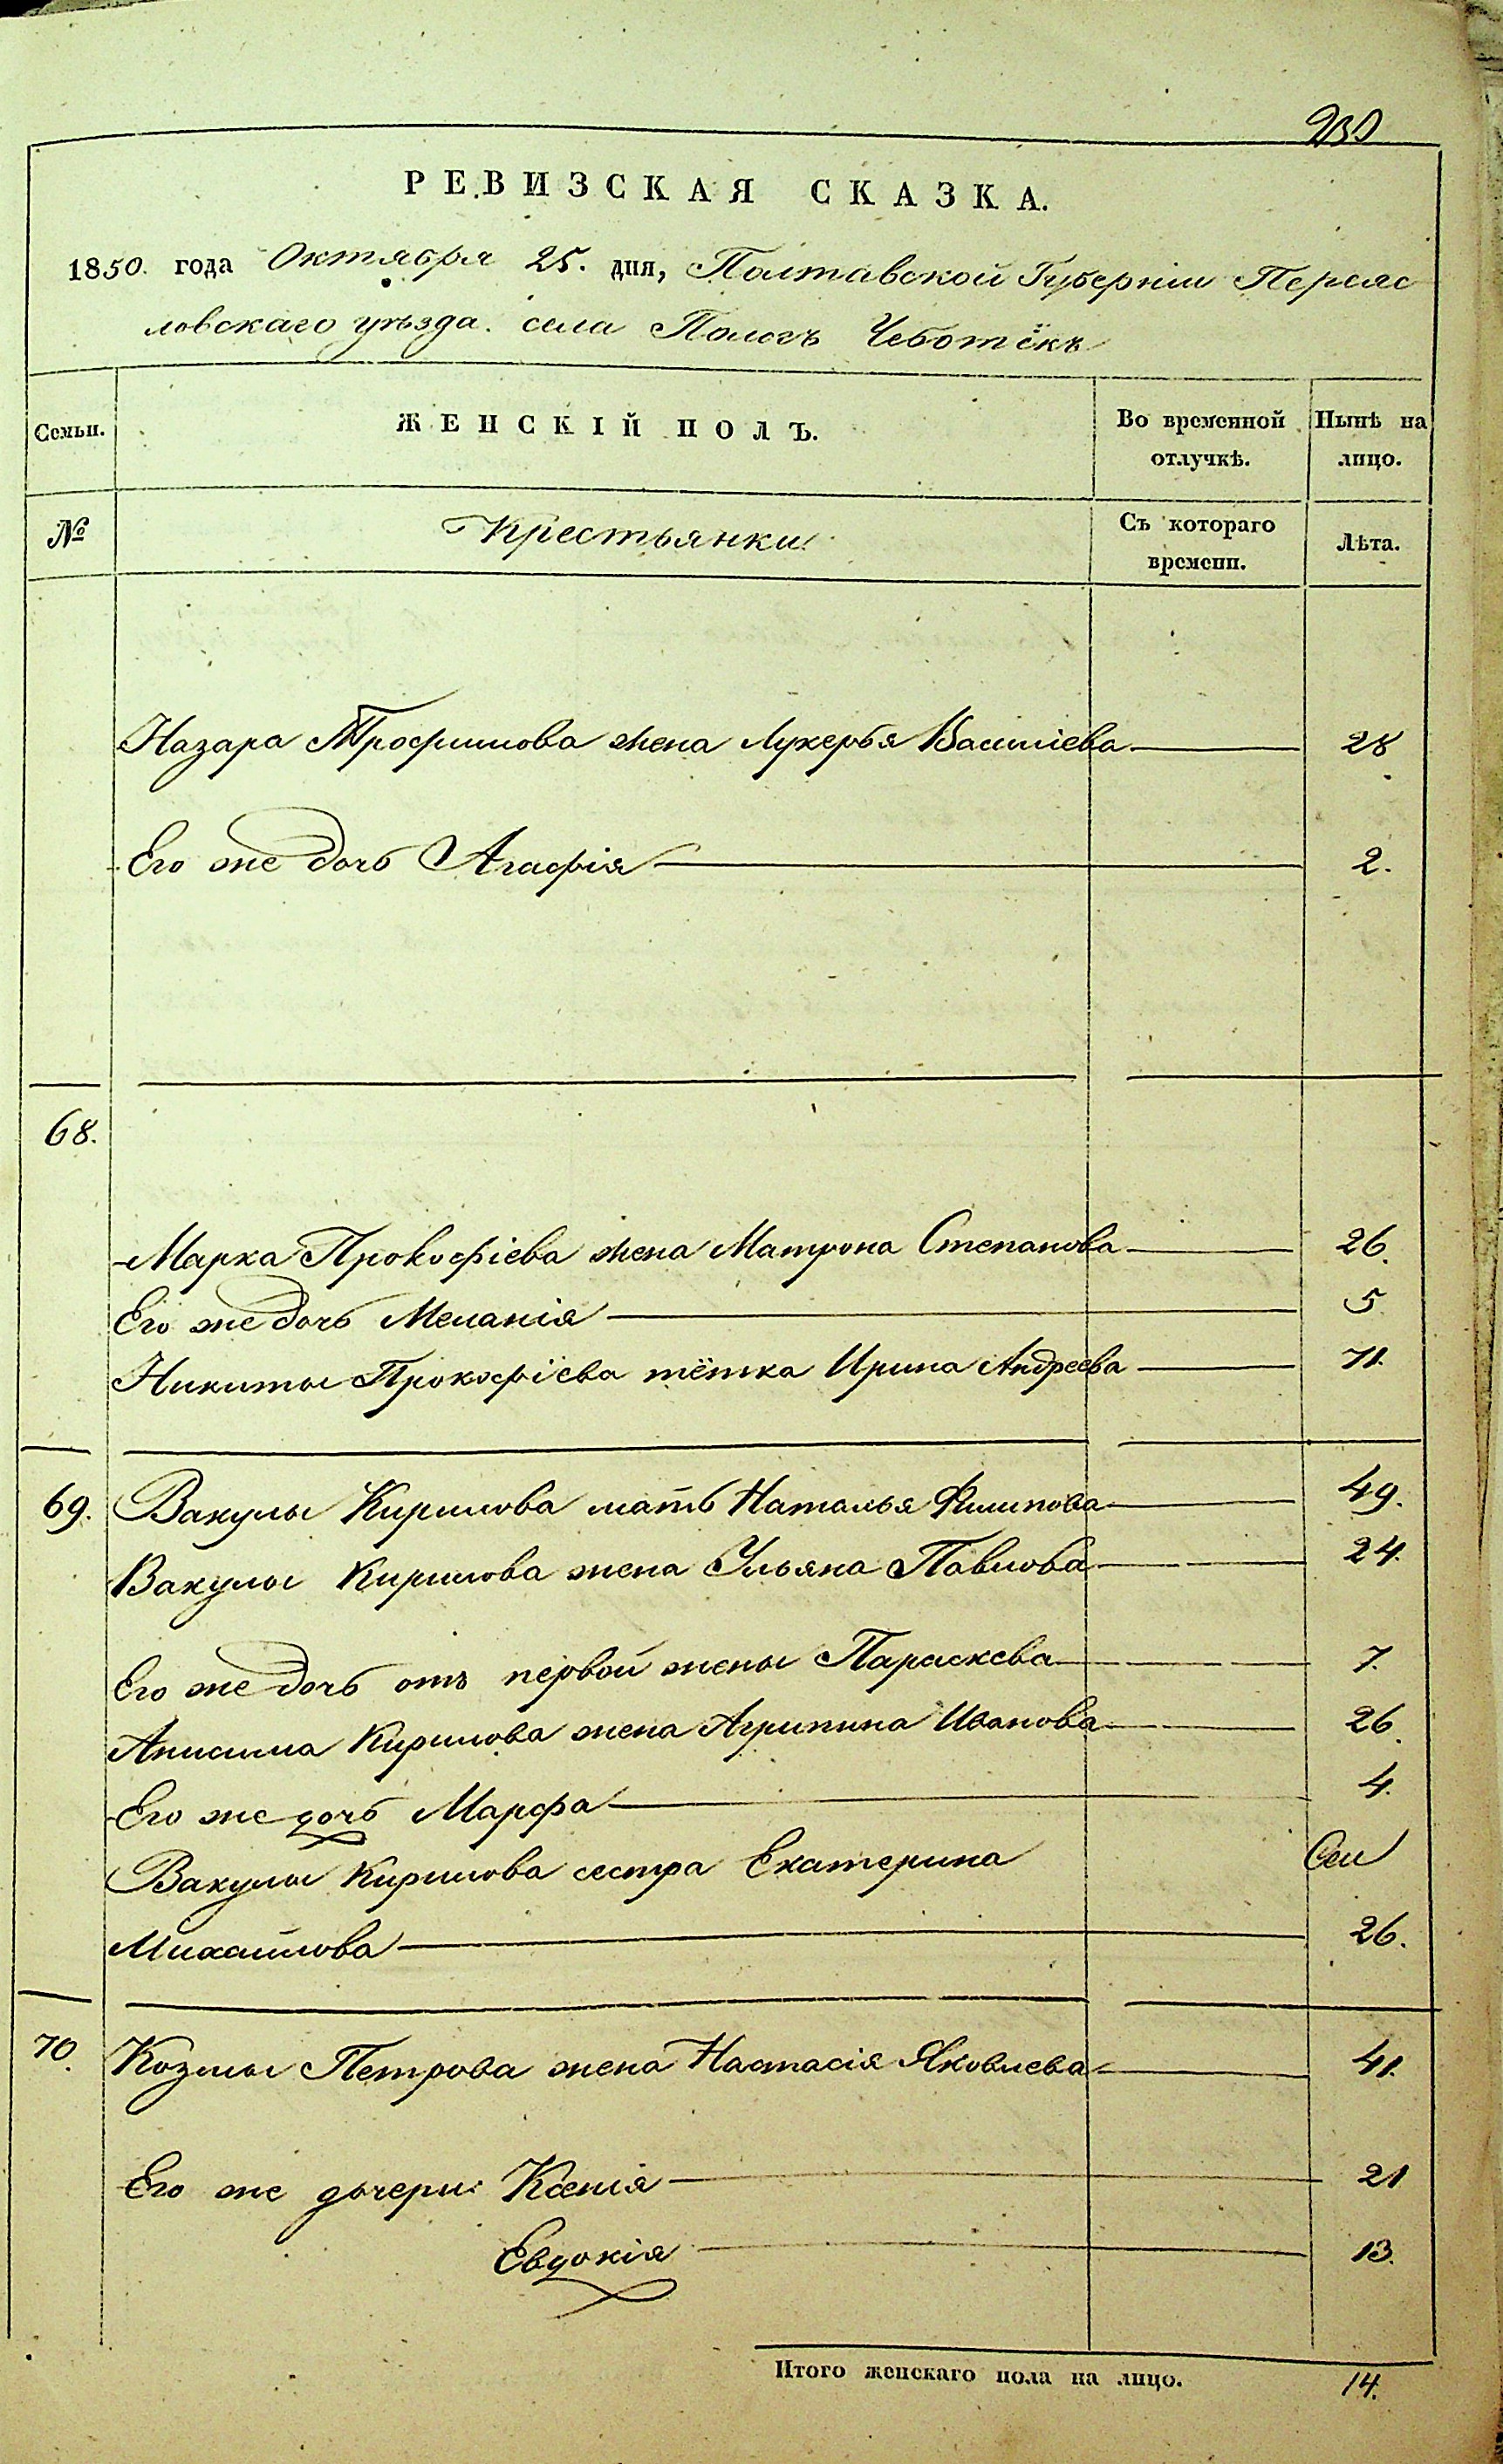 230
РЕВИЗСКАЯ СКАЗКА.
1850. года Октября 25. дня, Полтавской Губерніи Переяс
ловскаго уѣзда. села Пологъ Чеботёкъ
Семьи. ЖЕНСКІЙ ПОЛЪ. Во временной отлучкѣ. Нынѣ на лицо.
№ Крестьянки. Съ котораго времени. Лѣта.
Назара Трофимова жена Лукерья Василіева 28
Его же дочь Агафія 2.
68.
Марка Прокофіева жена Матрона Степанова 26.
Его же дочь Меланія 5
Никиты Прокофіева тётка Ирина Андреева 71.
69. Вакулы Кирилова мать Наталья Филипова 49.
Вакулы Кирилова жена Ульяна Павлова 24.
Его же дочь отъ первой жены Параскева 7.
Анисима Кирилова жена Агрипина Иванова 26.
Его же дочь Марфа 4.
Вакулы Кирилова сестра Екатерина
Михайлова 26.
70. Козмы Петрова жена Настасія Яковлева 41.
Его же дочери: Ксенія 21
Евдокія 13.
Итого женскаго пола на лицо. 14.